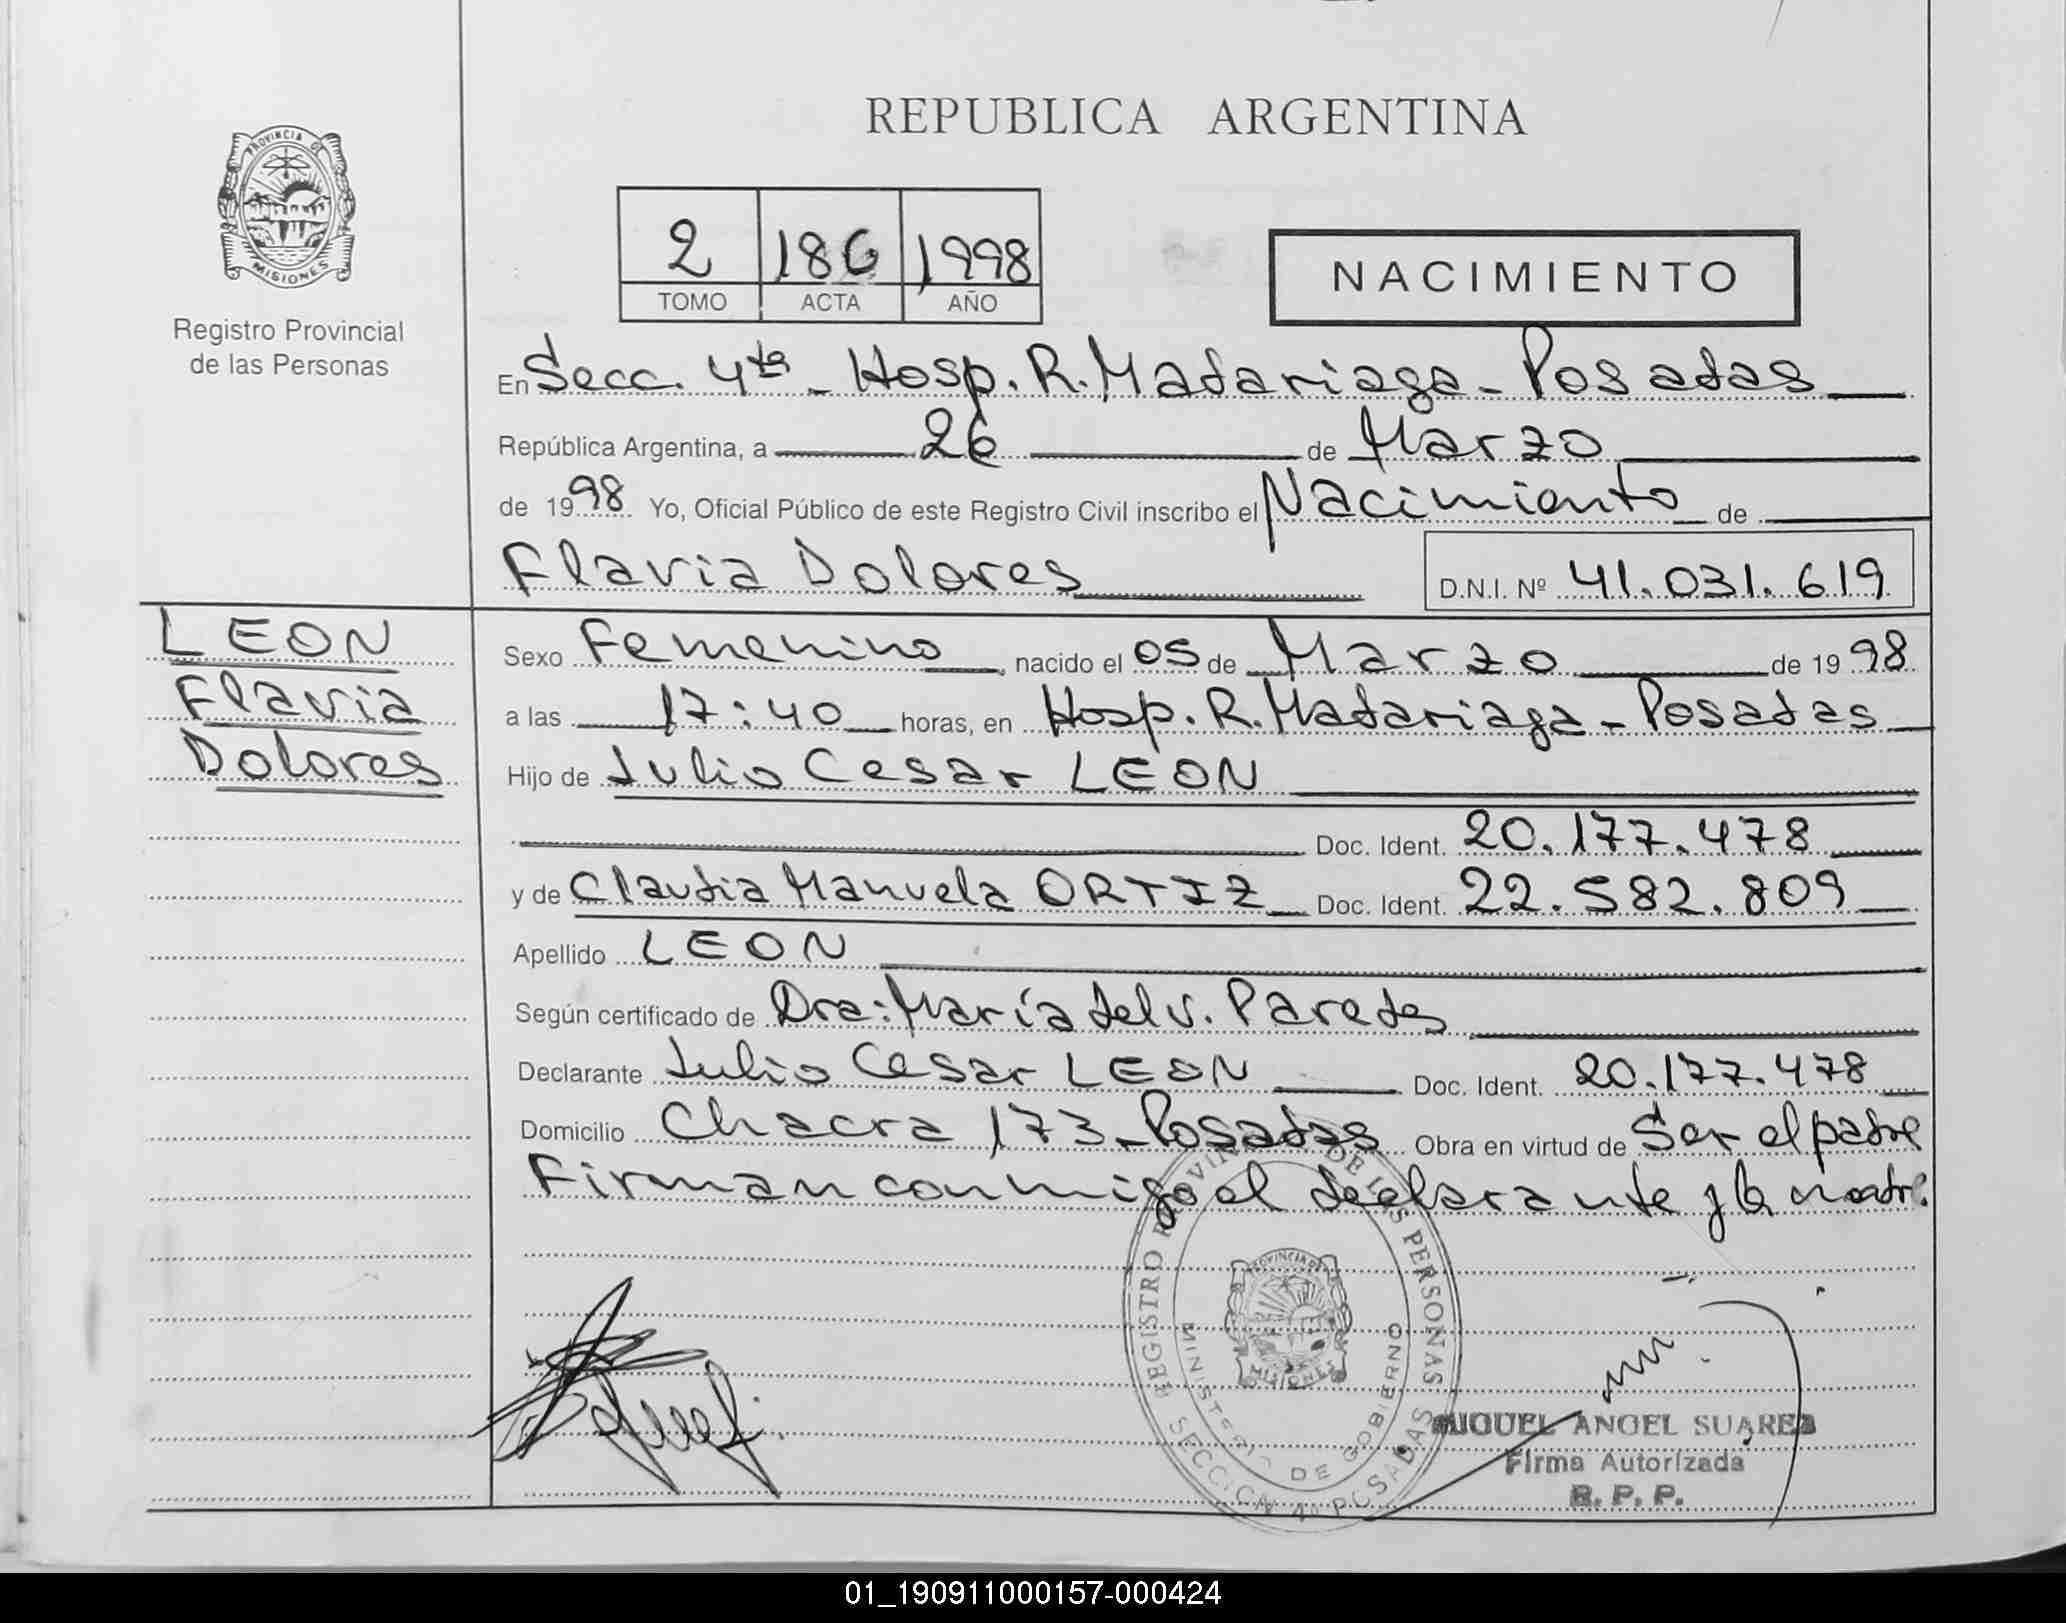 REPUBLICA ARGENTINA
PROVINCIA DE
MISIONES
Registro Provincial
de las Personas
2 186 1998
TOMO ACTA AÑO
NACIMIENTO
En Secc. 4ta - Hosp. R. Madariaga - Posadas
República Argentina, a 26 de Marzo
de 1998 Yo, Oficial Público de este Registro Civil inscribo el Nacimiento de
Flavia Dolores D.N.I. Nº 41.031.619
LEON
Flavia
Dolores
Sexo Femenino, nacido el 05 de Marzo de 1998
a las 17:40 horas, en Hosp. R. Madariaga - Posadas
Hijo de Julio Cesar LEON
Doc. Ident. 20.177.478
y de Claudia Manuela ORTIZ Doc. Ident. 22.582.809
Apellido LEON
Según certificado de Dra: María del v. Paredes
Declarante Julio Cesar LEON Doc. Ident. 20.177.478
Domicilio Chacra 173 - Posadas Obra en virtud de Ser el padre
Firman conmigo el declarante y la madre.
REGISTRO PROVINCIAL DE LAS PERSONAS
MINISTERIO DE GOBIERNO
PROVINCIA DE
MISIONES
SECCION 4a POSADAS
MIGUEL ANGEL SUAREZ
Firma Autorizada
R. P. P.
01_190911000157-000424